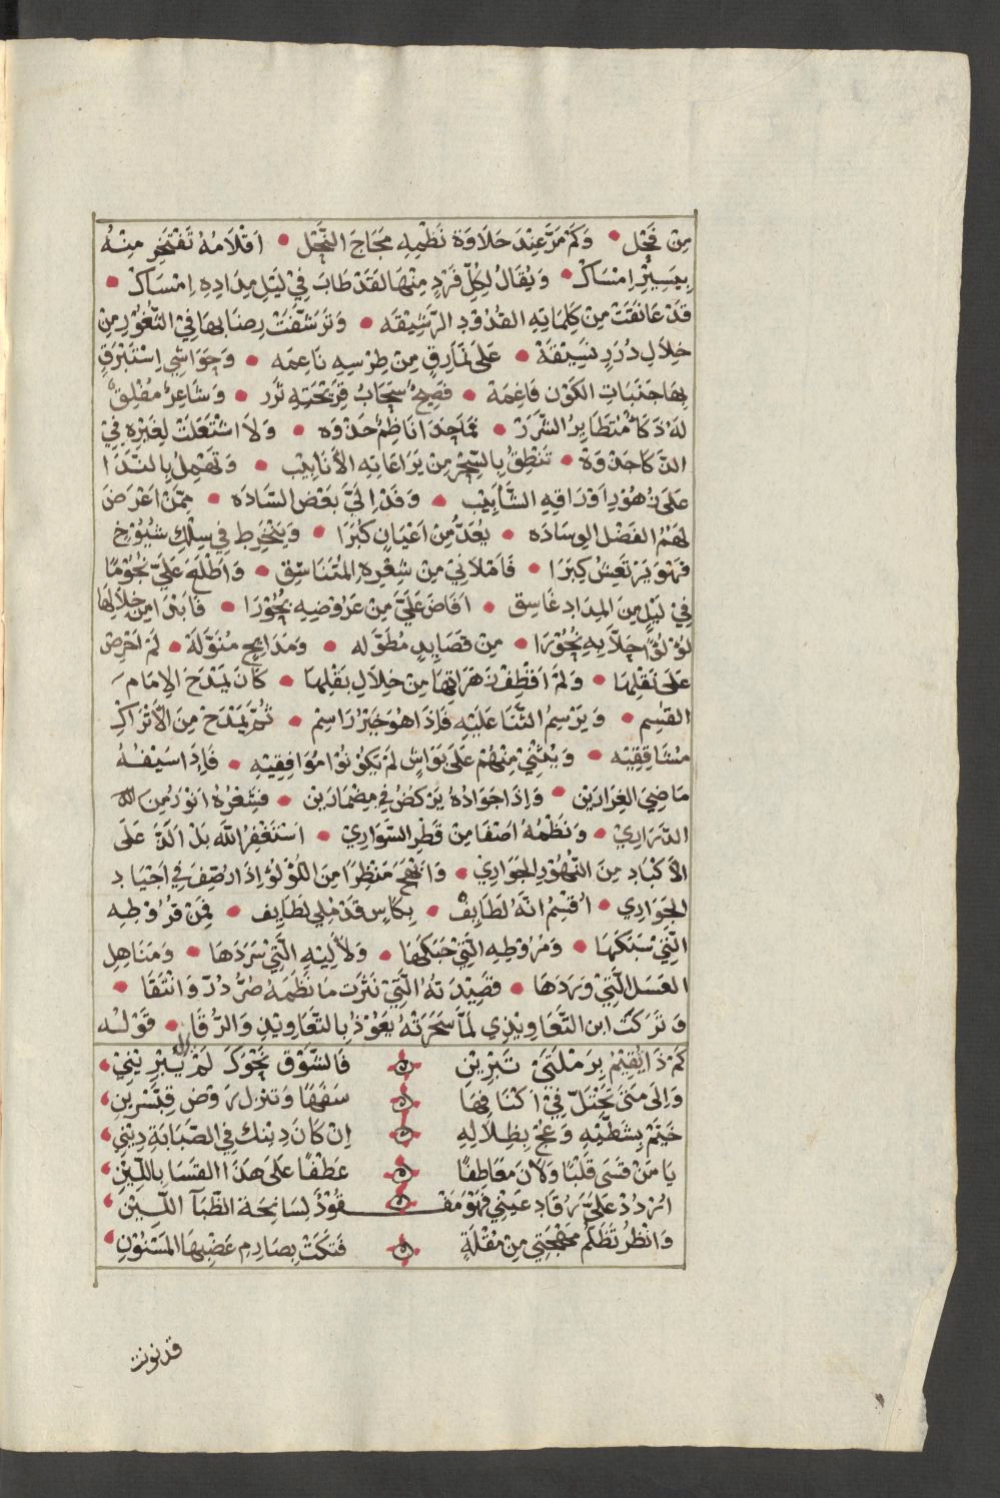 مِنْ فَحْل • وَكَمْ مَرَّ عِنْدَ حَلَاوَةِ نَظْمِهِ مُجَاجَ النَّحْل • اَقْلَامُهُ تَفْتَخِر مِنْهُ
بِيَسِيْرِ اِمْسَاكْ • وَيُقَالُ لِكُلِّ فَرْدٍ مِنْهَا لَقَدْ طَابَ فِيْ لَيْلِ مِدَادِهِ اِمْسَاكْ •
قَدْ عَانَقَتْ مِنْ كَلِمَاتِهِ القُدُوْدِ الرَّشِيْقَه • وَتَرَشَّفَتْ رِضَابهَا فِيْ الثُّغُوْرِ مِنْ
خِلَالِ دُرَرٍ نَسِيْقَةْ • عَلَى نَمَارِقٍ مِنْ طِرْسِهِ نَاعِمَه • وَحَوَاشِي اِسْتَبْرَقٍ
بِهَا جَنَبَاتِ الكَوْنِ فَاغِمَهْ • فَصِيْحٌ سَحَابُ قَرِيْحَتِهِ ثَرَر • وَشَاعِرٌ مُفْلِقٌ
لَهُ ذَكَاءٌ مُتَطَايِرُ الشَّرَرْ • فَمَا حَدَا نَاظِمٌ حَذْوَه • وَلَا اشْتَعَلَتْ لِغَيْرِهِ فِيْ
الذَّكَا جَذْوَةْ • تَنْطِقُ بِالسِّحْرِ مِنْ يَرَاعَاتِهِ الأَنَابِيْب • وَتَهْمِلُ بِالنَّدَا
عَلَى زُهُوْرِ اَوْرَاقِهِ الشَّآبِيْب • وَفَدَ اِلَيَّ بَعْضُ السَّادَه • مِمَّنْ اَعْرَضَ
لَهُمُ الفَضْلُ الوِسَادَه • يُعَدُّ مِنْ اَعْيَانٍ كُبَرَا • وَيَنْخَرِطُ فِي سِلْكِ شُيُوْخٍ
فَهْوَ يَرْتَعِشُ كِبَرَا • فَاَمْلَانِيْ مِنْ شِعْرِهِ المُتَنَاسِق • وَاَطْلَعَ عَلَيَّ نُجُوْمًا
فِيْ لَيْلٍ مِنَ المِدَادِ غَاسِق • اَفَاضَ عَلَيَّ مِنْ عَرُوْضِهِ بُحُوْرَا • فَاَبْدَا مِنْ خِلَالِهَا
لُؤْلُؤًا حَلَّا بِهِ نُحُوْرَا • مِنْ قَصَايِدٍ مُطَوَّلَه • وَمَدَايِحٍ مُنَوَّلَةْ • لَمْ اَحْرِصْ
عَلَى نَقْلِهَا • وَلَمْ اَقْطِفْ زَهَرَاتِهَا مِنْ خِلَالِ بَقْلِهَا • كَانَ يَمْدَحُ الإِمَامَ
القسِم • وَيَرْسِمُ الثَّنَا عَلَيْهِ فَاِذَا هُوَ خَيْرُ رَاسِم • ثُمَّ يَمْدَحُ مِنَ الأَتْرَاكِ
مُشَاقِقِيْه • وَيُثْنِيْ مِنْهُمْ عَلَى بَوَاشٍ لَمْ يَكُوْنُوْا مُوَافِقِيْهِ • فَاِذَا سَيْفُهُ
مَاضِيَ الغِرَارَيْن • وَاِذَا جَوَادُهُ يَرْكَضُ فِي مِضْمَارَيْن • فَشِعْرُهُ اَنْوَرُ مِنَ
الدَّرَارِيْ • وَنَظْمُهُ اَصْفَا مِنْ قَطْرِ السَّوَارِيْ • اَسْتَغْفِرُ اللّٰهَ بَلْ اَلَذُّ عَلَى
الأَكْبَادِ مِنَ النُّهُوْرِ الجَوَارِيْ • وَاَبْهَجُ مَنْظَرًا مِنَ اللُّؤْلُؤِ اِذَا رُصِّفَ فِي اَجْيَادِ
الجَوَارِي • اُقْسِمُ اَنَّهُ لَطَايِفْ • بِكَاْسٍ قَدْ مُلِي لَطَايِف • فَمِنْ قُرُوْطِهِ
الَّتِيْ سَبَكَهَا • وَمُرُوْطِهِ الَّتِيْ حَبَكَهَا • وَلَآلِيْهِ الَّتِيْ سَرَدَهَا • وَمَنَاهِلِ
العَسَلِ الَّتِيْ وَرَدَهَا • قَصِيْدَتُهُ الَّتِيْ نَثَرَتْ مَا نَظَمَهُ صُرُّدُرّ وَانْتَقَا •
وَتَرَكَتْ ابن التَّعَاوِيْذِي لَمَّا سَحَرَتْهُ يَعُوْذُ بِالتَّعَاوِيْذِ وَالرُّقَا • قَوْلُه
كَمْ ذَا يُقِيْمُ بِرَمْلَتَيْ تَبْرِيْنِ ۞ فَالشَّوْقُ نَحْوَكَ لَمْ يَزَلْ يَبْرِيْنِيْ
وَاِلَى مَتَى تَحْتَلُّ فِيْ اَكْنَافِهَا ۞ سَفَهًا وَتَنْزِلُ رَوْضَ قِنَّسْرِيْنِ
خَيِّمْ بِشَطَّيْهِ وَعُجْ بِظِلَالِهِ ۞ اِنْ كَانَ دِيْنُكَ فِي الصَّبَابَةِ دِيْنِي
يَا مَنْ قَسَى قَلْبًا وَلَانَ مَعَاطِفًا ۞ عَطْفًا عَلَى هَذَا القَسَا بِاللِّيْنِ
اُرْدُدْ عَلَيَّ رُقَادَ عَيْنِيْ فَهْوَ مَفْـ ۞ ـقُوْدٌ لِسَانِحَةِ الظِّبَآ العِيْنِ
وَانْظُرْ تَظَلُّمَ مُهْجَتِيْ مِنْ مُقْلَةٍ ۞ فَتَكَتْ بِصَارِمِ عَضْبِهَا المَسْنُوْنِ
قد نونت